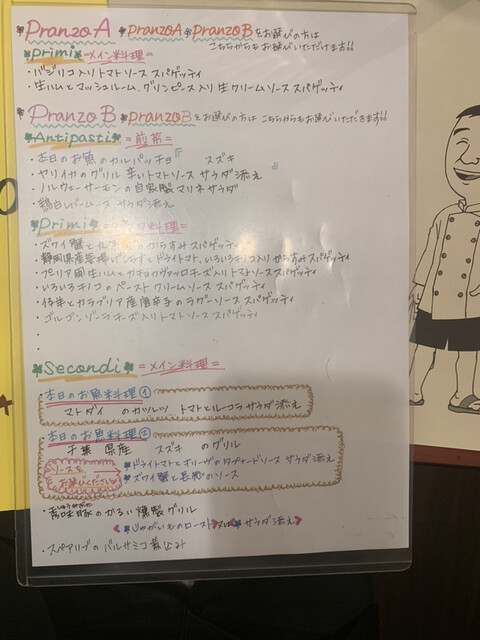 PranzoA PranzoA PranzoB をお選びの方は
こちらからもお選びいただけます
Primi =メイン料理=
・バジリコ入りトマトソース スパゲッティ
・生ハムとマッシュルーム、グリンピース入り生クリームソース スパゲッティ
PranzoB PranzoB をお選びの方は こちらからもお選びいただきます
Antipasti =前菜=
・本日のお魚のカルパッチョ 『 スズキ 』
・ヤリイカのグリル 辛いトマトソース サラダ添え
・ノルウェーサーモンの自家製マリネ サラダ
・鶏白レバームース サラダ添え
Primi 料理=
・ズワイ蟹と からすみ スパゲッティ
・静岡県産 とドライトマト、いろいろキノコ入り からすみ スパゲッティ
生ハムと チーズ入りトマトソース スパゲッティ
・いろいろキノコのペースト クリームソース スパゲッティ
・仔羊とカラブリア産唐辛子のラグーソース スパゲッティ
・ゴルゴンゾーラチーズ入りトマトソース スパゲッティ
・
・
Secondi =メイン料理=
・本日のお魚料理①
マトダイ のカツレツ トマトとルーコラ サラダ添え
・本日のお魚料理②
千葉 県産 スズキ のグリル
ソースを お選びください
ドライトマトとオリーヴの ソース サラダ添え
ズワイ蟹と長 のソース
豚のかるい燻製グリル
じゃがいものロースト 又は サラダ添え
・スペアリブの バルサミコ煮込み